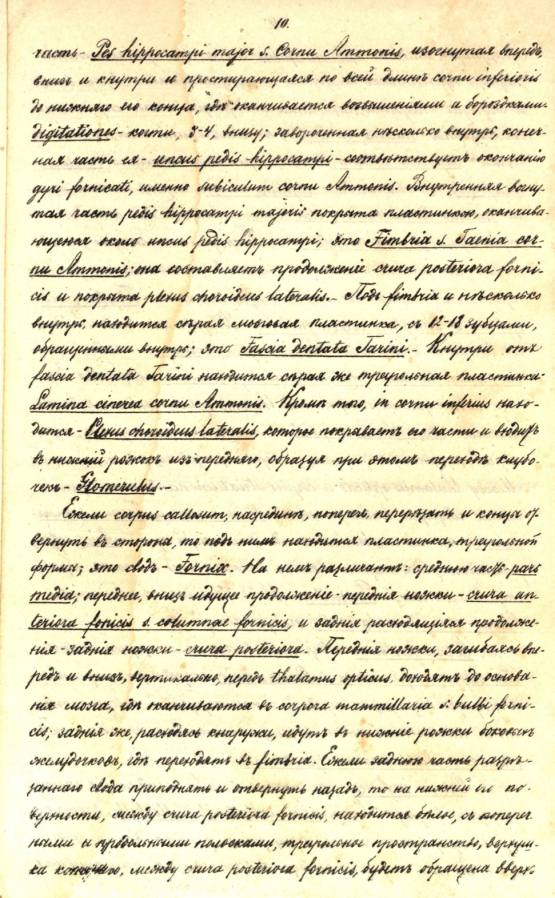 10.
часть – Pes hippocampi major s. Cornu Ammonis, изогнутая впередъ,
внизъ и кнутри и простирающаяся по всей длинѣ cornu inferioris
до нижняго его конца, гдѣ оканчивается возвышеніями и бороздками
digitationes – когти, 3-4, внизу; завороченная нѣсколько внутрь, конеч-
ная часть ея – uncus pedis hippocampi – соотвѣтствуетъ окончанію
gyri fornicati, именно subiculum cornu Ammonis. Внутренняя вогну-
тая часть pedis hippocampi majoris покрыта пластинкою, оканчива-
ющеюся около uncus pedis hippocampi; это Fimbria s. Taenia cor-
nu Ammonis; она составляетъ продолженіе crura posteriora forni-
cis и покрыта plexus choroideus lateralis. – Подъ fimbria и нѣсколько
внутрь, находится сѣрая мозговая пластинка, съ 12-13 зубцами,
обращенными внутрь; это Fascia dentata Tarini. – Кнутри отъ
fascia dentata Tarini находится сѣрая же треугольная пластинка
Lamina cinerea cornu Ammonis. Кромѣ того, in cornu inferius нахо-
дится – Plexus choroideus lateralis, которое покрываетъ его части и входитъ
въ нижній рожокъ изъ передняго, образуя при этомъ переходѣ клубо-
чекъ – Glomerulus. –
Ежели corpus callosum, насрединѣ, поперегъ, перерѣзать и концы от-
вернуть въ сторона, то подъ нимъ находится пластинка, треугольной
формы; это сводъ – Fornix. На немъ различаютъ: среднюю часть – pars
media; переднее, внизъ идущее продолженіе – переднія ножки – crura an-
teriora fonicis s. columnae fornicis, и заднія расходящіяся продолже-
нія – заднія ножки – crura posteriora. Переднія ножки, загибаясь впе-
редъ и внизъ, вертикально, передъ thalamus opticus, доходятъ до основа-
нія мозга, гдѣ оканчиваются въ corpora mammillaria s. bulbi forni-
cis; заднія же, расходясь кнаружи, идутъ въ нижніе рожки боковыхъ
желудочковъ, гдѣ переходятъ въ fimbria. Ежели заднюю часть разрѣ-
заннаго свода приподнять и отвернуть назадъ, то на нижней его по-
верхности, между crura posteriora fornicis, находится бѣлое, съ попереч
ными и продольными полосками, треугольное пространство, верхуш-
ка котораго, между crura posteriora fornicis, будетъ обращена вверхъ